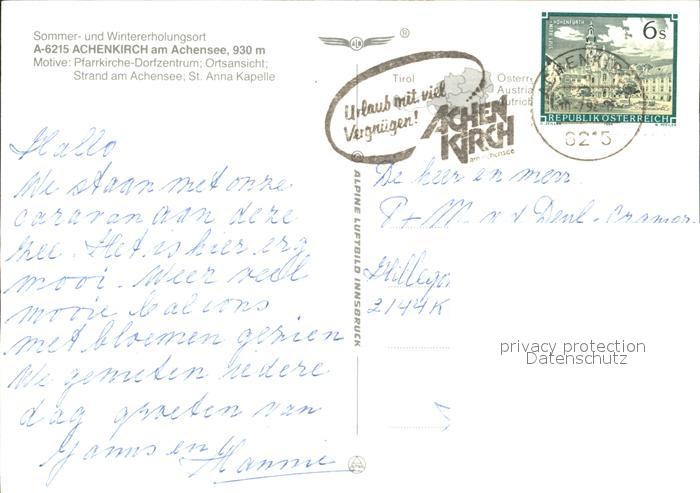 Sommer- und Wintererholungsort
A-6215 ACHENKIRCH am Achensee, 930 m
Motive: Pfarrkirche-Dorfzentrum; Ortsansicht;
Strand am Achensee; St. Anna Kapelle
Hallo
We staan met onze
caravan aan deze
zee. Het is hier erg
mooi. Weer veel
mooie balcons
met bloemen gezien
We genieten iedere
dag groeten van
en Hannie
ALPINE LUFTBILD INNSBRUCK
®
Tirol
Österr
Austria
Autrich
Urlaub mit viel
Vergnügen!
ACHEN
KIRCH
am Achensee
STIFT REIN-HOHENFURTH
6 S
REPUBLIK ÖSTERREICH
ACHENKIRCH
6215
De heer en mevr.
P+M v d Deul-Cramer
Hillegom
2144K
privacy protection
Datenschutz